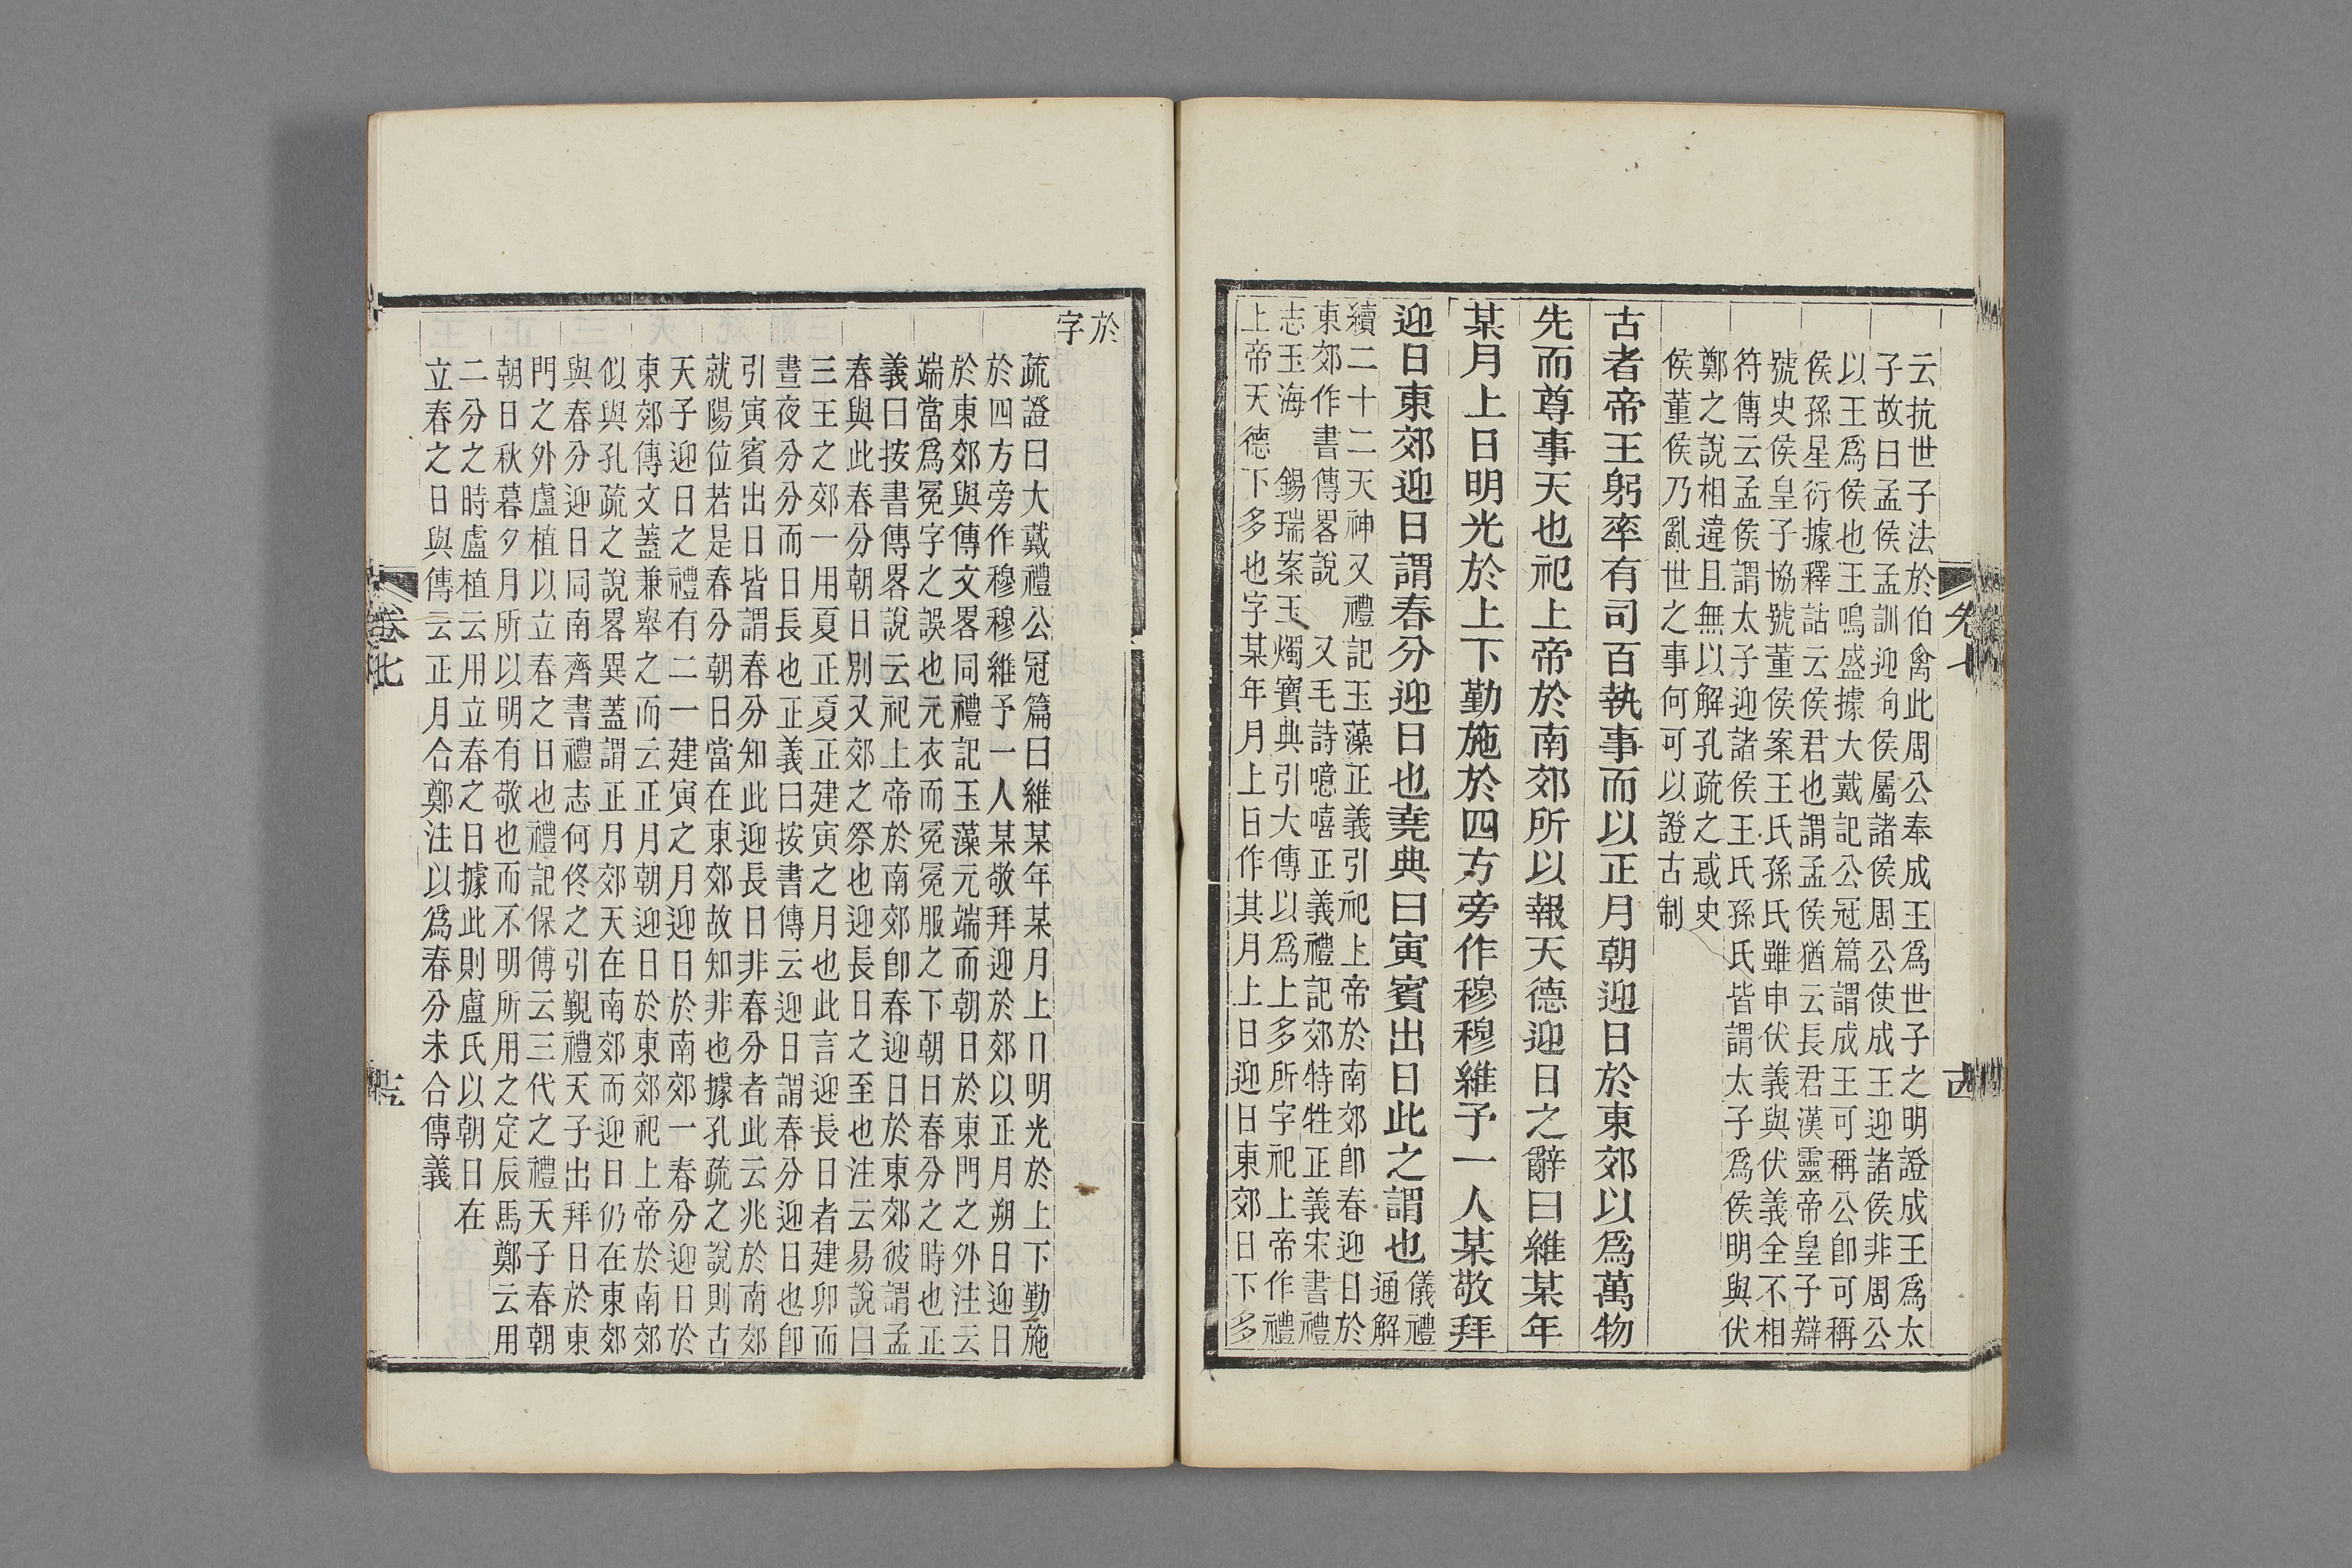 云抗世子法於伯禽此周公奉成王爲世子之明證成王爲太
子故曰孟侯孟訓迎向侯屬諸侯周公使成王迎諸侯非周公
以王爲侯也王鳴盛據大戴記公冠篇謂成王可稱公卽可稱
侯孫星衍據釋詁云侯君也謂孟侯猶云長君漢靈帝皇子辯
號史侯皇子協號董侯案王氏孫氏雖申伏義與伏義全不相
符傳云孟侯謂太子迎諸侯王氏孫氏皆謂太子爲侯明與伏
鄭之說相違且無以解孔疏之惑史
侯董侯乃亂世之事何可以證古制
古者帝王躬率有司百執事而以正月朝迎日於東郊以爲萬物
先而尊事天也祀上帝於南郊所以報天德迎日之辭曰維某年
某月上日明光於上下勤施於四方旁作穆穆維予一人某敬拜
迎日東郊迎日謂春分迎日也堯典曰寅賓出日此之謂也儀禮
通解
續二十二天神又禮記玉藻正義引祀上帝於南郊卽春迎日於
東郊作書傳畧說 又毛詩噫嘻正義禮記郊特牲正義宋書禮
志玉海 錫瑞案玉燭寶典引大傳以爲上多所字祀上帝作禮
上帝天德下多也字某年月上日作其月上日迎日東郊日下多
於
字
疏證曰大戴禮公冠篇曰維某年某月上日明光於上下勤施
於四方旁作穆穆維予一人某敬拜迎於郊以正月朔日迎日
於東郊與傳文畧同禮記玉藻元端而朝日於東門之外注云
端當爲冕字之誤也元衣而冕冕服之下朝日春分之時也正
義曰按書傳畧說云祀上帝於南郊卽春迎日於東郊彼謂孟
春與此春分朝日別又郊之祭也迎長日之至也注云易說曰
三王之郊一用夏正夏正建寅之月也此言迎長日者建卯而
晝夜分分而日長也正義曰按書傳云迎日謂春分迎日也卽
引寅賓出日皆謂春分知此迎長日非春分者此云兆於南郊
就陽位若是春分朝日當在東郊故知非也據孔疏之說則古
天子迎日之禮有二一建寅之月迎日於南郊一春分迎日於
東郊傳文蓋兼舉之而云正月朝迎日於東郊祀上帝於南郊
似與孔疏之說畧異蓋謂正月郊天在南郊而迎日仍在東郊
與春分迎日同南齊書禮志何佟之引覲禮天子出拜日於東
門之外盧植以立春之日也禮記保傅云三代之禮天子春朝
朝日秋暮夕月所以明有敬也而不明所用之定辰馬鄭云用
二分之時盧植云用立春之日據此則盧氏以朝日在
立春之日與傳云正月合鄭注以爲春分未合傳義